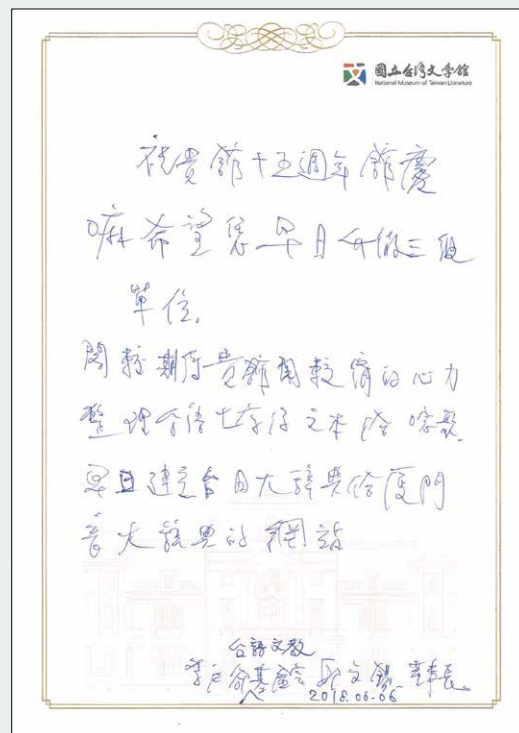 國立台灣文學館
National Museum of Taiwan Literature
祝貴館十五週年館慶
嘛希望恁早日升做三級
單位。
閣較期待貴館用較濟的心力
整理台語七字仔文本 佮 唸歌
早日建立台日大辭典佮廈門
音大辭典的網站
台語文教
基金會
董事長
2018.06.06